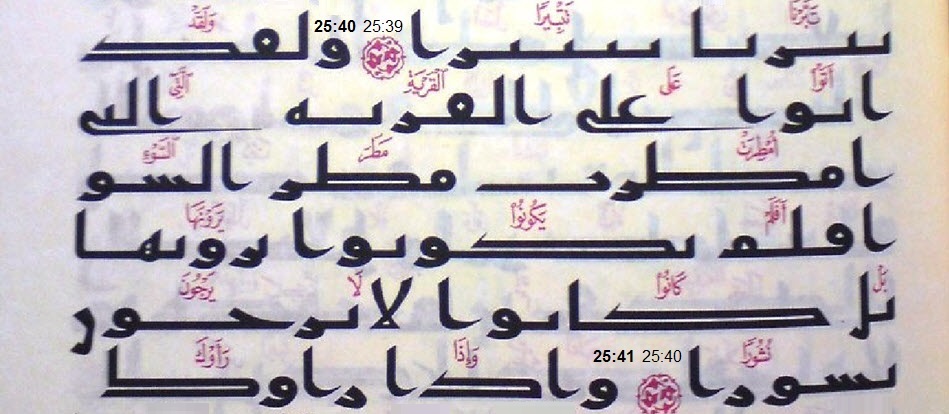 تَبَّرْنَا تَتْبِيرًا وَلَقَدْ
تبرنا تتبيرا 25:39 25:40 ولقد
أَتَوْا عَلَى ٱلْقَرْيَةِ ٱلَّتِى
اتوا على القريه التى
أُمْطِرَتْ مَطَرَ ٱلسَّوْءِ
امطرت مطر السو
أَفَلَمْ يَكُونُوا يَرَوْنَهَا
افلم يكونوا يرونها
بَلْ كَانُوا لَا يَرْجُونَ
بل كانوا لا يرجون
نُشُورًا وَإِذَا رَأَوْكَ
نشورا 25:40 25:41 واذا راوك